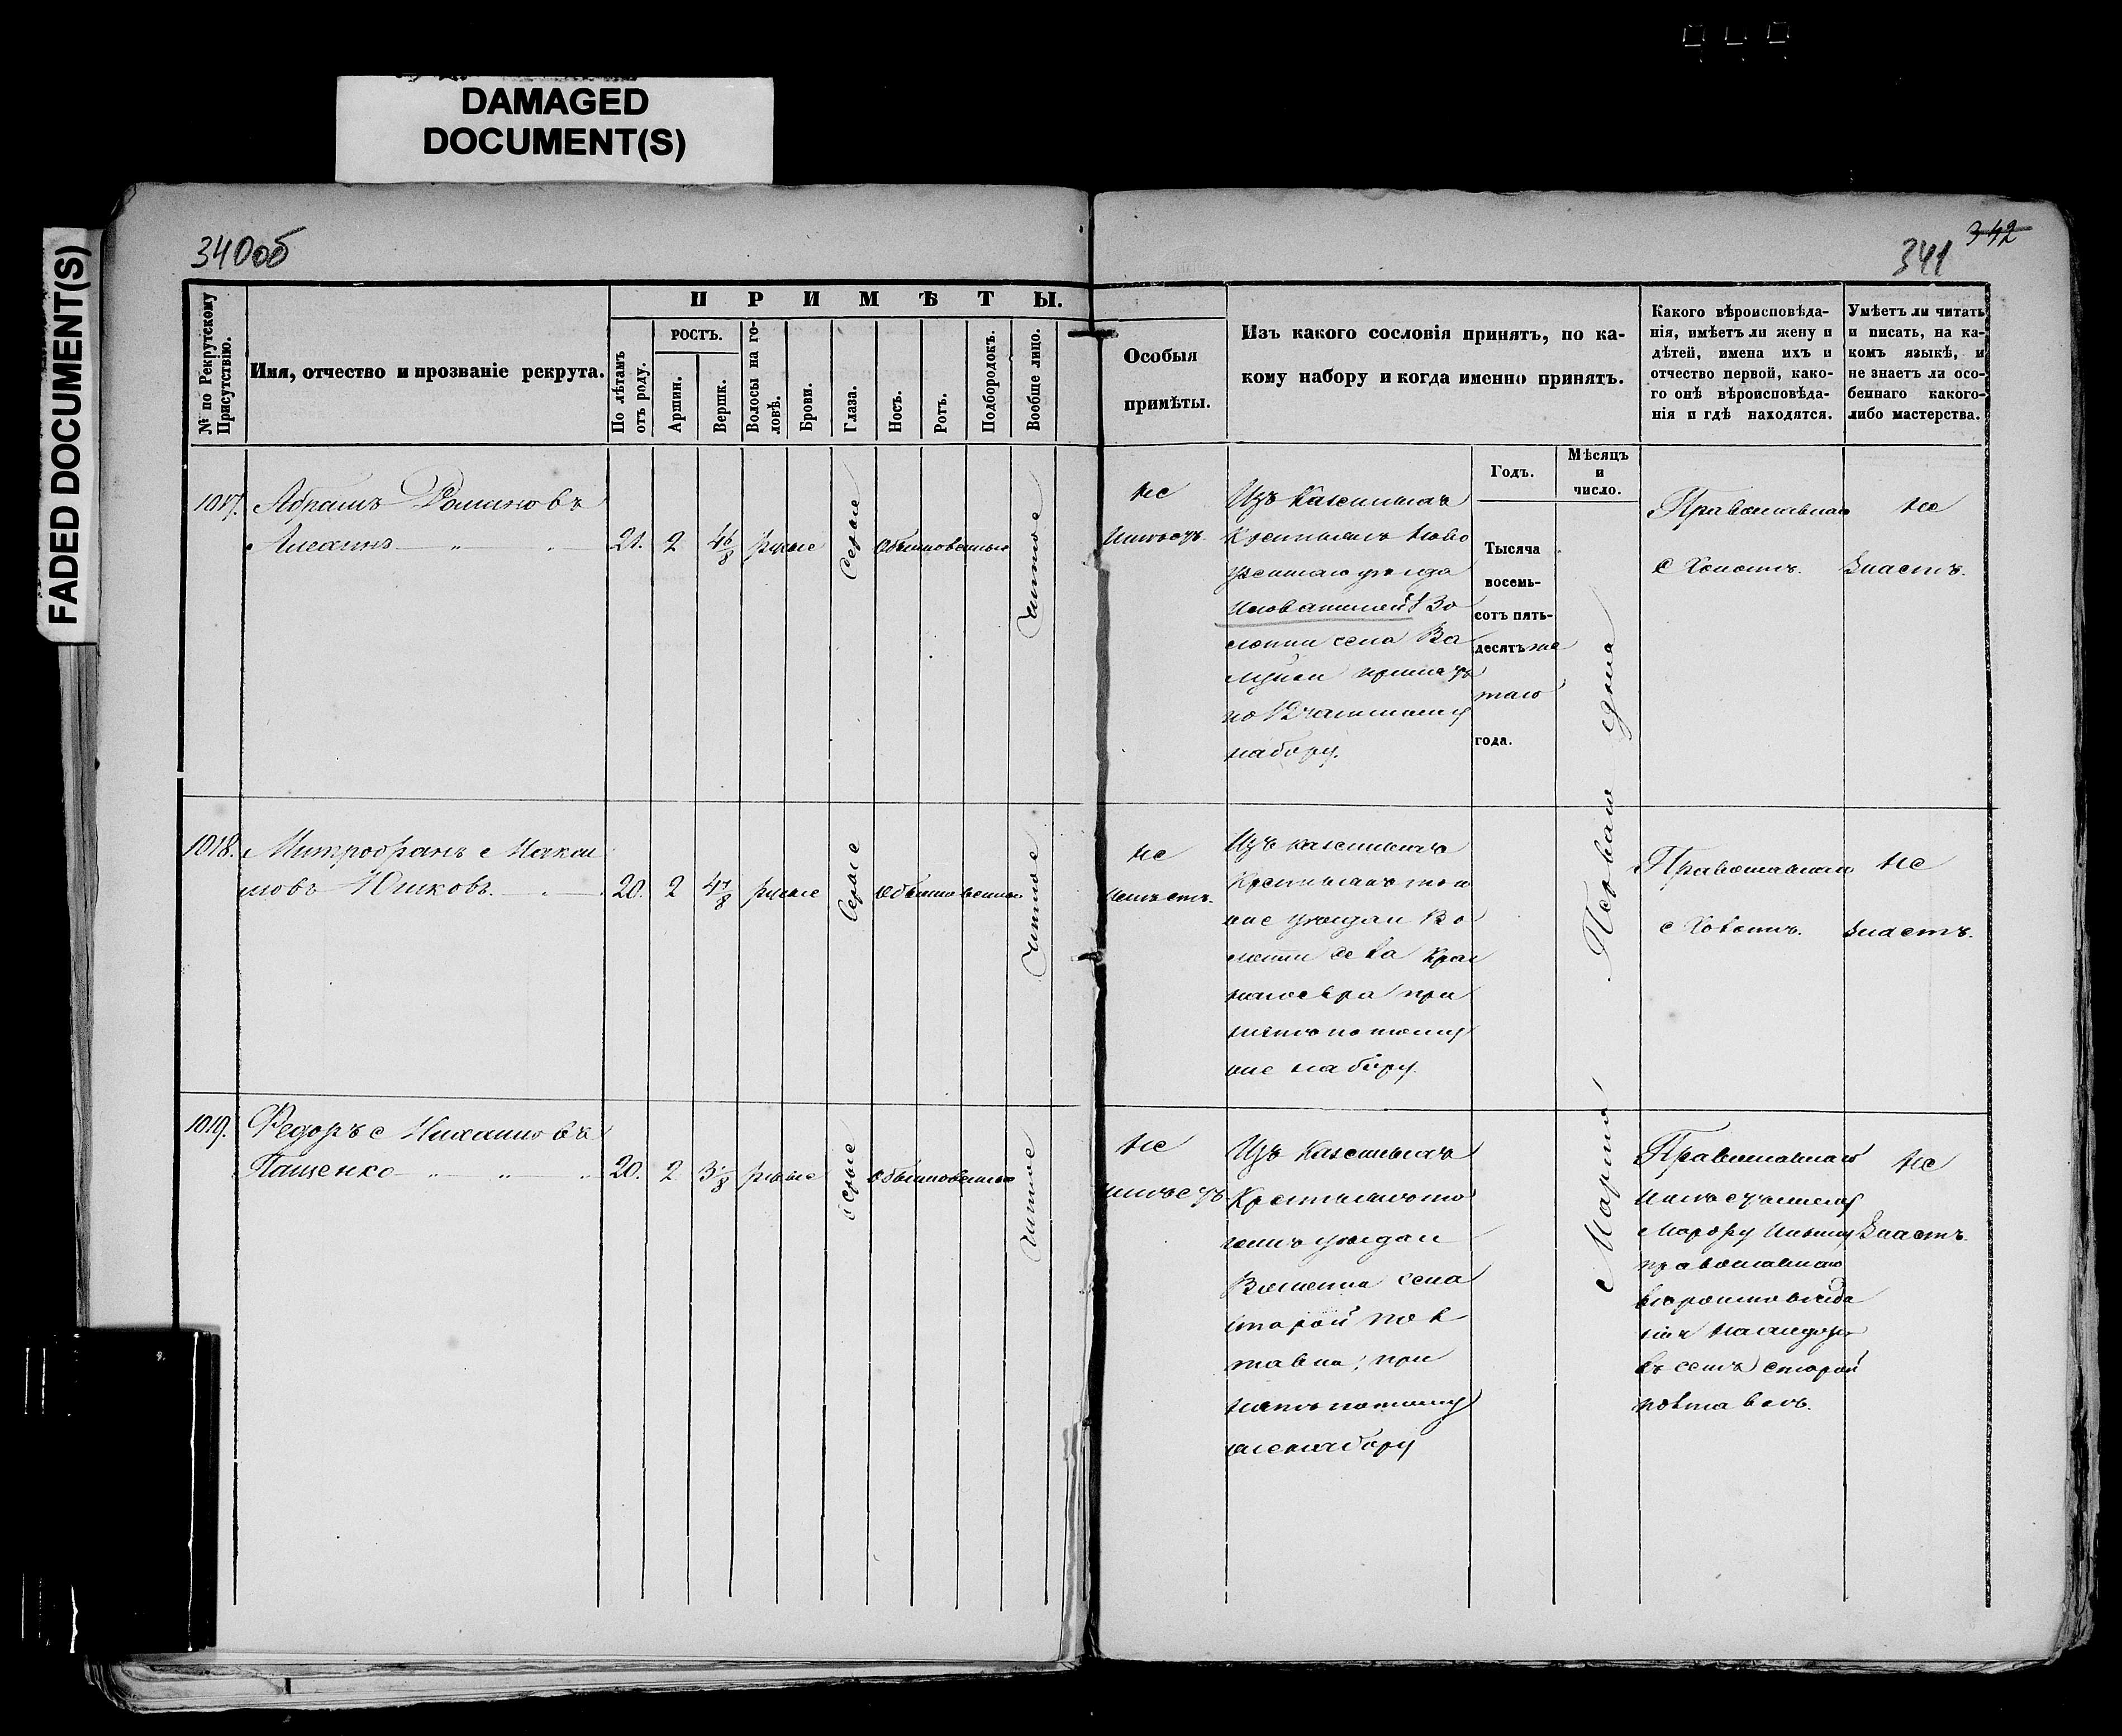 DAMAGED
DOCUMENT(S)
FADED DOCUMENT(S)
340об
342
341
№ по Рекрутскому Присутствію.
Имя, отчество и прозваніе рекрута.
ПРИМѢТЫ.
По лѣтамъ отъ роду.
РОСТЪ.
Аршин.
Вершк.
Волосы на головѣ.
Брови.
Глаза.
Носъ.
Ротъ.
Подбородокъ.
Вообще лицо.
Особыя
примѣты.
Изъ какого сословія принятъ, по ка-
кому набору и когда именно принятъ.
Какого вѣроисповѣда-
нія, имѣетъ ли жену и
дѣтей, имена ихъ и
отчество первой, како-
го онѣ вѣроисповѣда-
нія и гдѣ находятся.
Умѣетъ ли читать
и писать, на ка-
комъ языкѣ, и
не знаетъ ли осо-
беннаго какого-
либо мастерства.
Годъ.
Мѣсяцъ
и
число.
1017. Абрамъ Романовъ
21. 2 4 6/8 русые Серые обыкновенные Чистое
не
имѣетъ.
Изъ Казенныхъ
Крестьянъ Ново
узенскаго уезда
Во
лости села Ва
луйки принятъ
по
набору.
Тысяча
восемь-
сотъ пять-
десятъ ше
стаго
года.
Марта Перваго дня
Православнаго
Холостъ.
не
знаетъ.
1018. Митрофанъ Макси
мовъ Юшковъ.
20. 2 4 русые Серые обыкновенные Чистое
не
имѣетъ.
Изъ казенныхъ
Крестьянъ того
же уезда Во
лости села Крас
наго Яра при
нятъ по тому
же набору.
Православнаго
Холостъ.
не
знаетъ.
1019. Федоръ Михайловъ
Пащенко
20. 2 3 русые Серые обыкновенные Чистое
не
имѣетъ
Изъ Казенныхъ
Крестьянъ то
гожъ уезда и
Волости села
Старой Пол
тавки, при
нятъ по тому
же набору
Православнаго
имѣетъ жену
православнаго
вѣроисповѣда
нія
въ селѣ Старой
Полтавкѣ.
не
знаетъ.